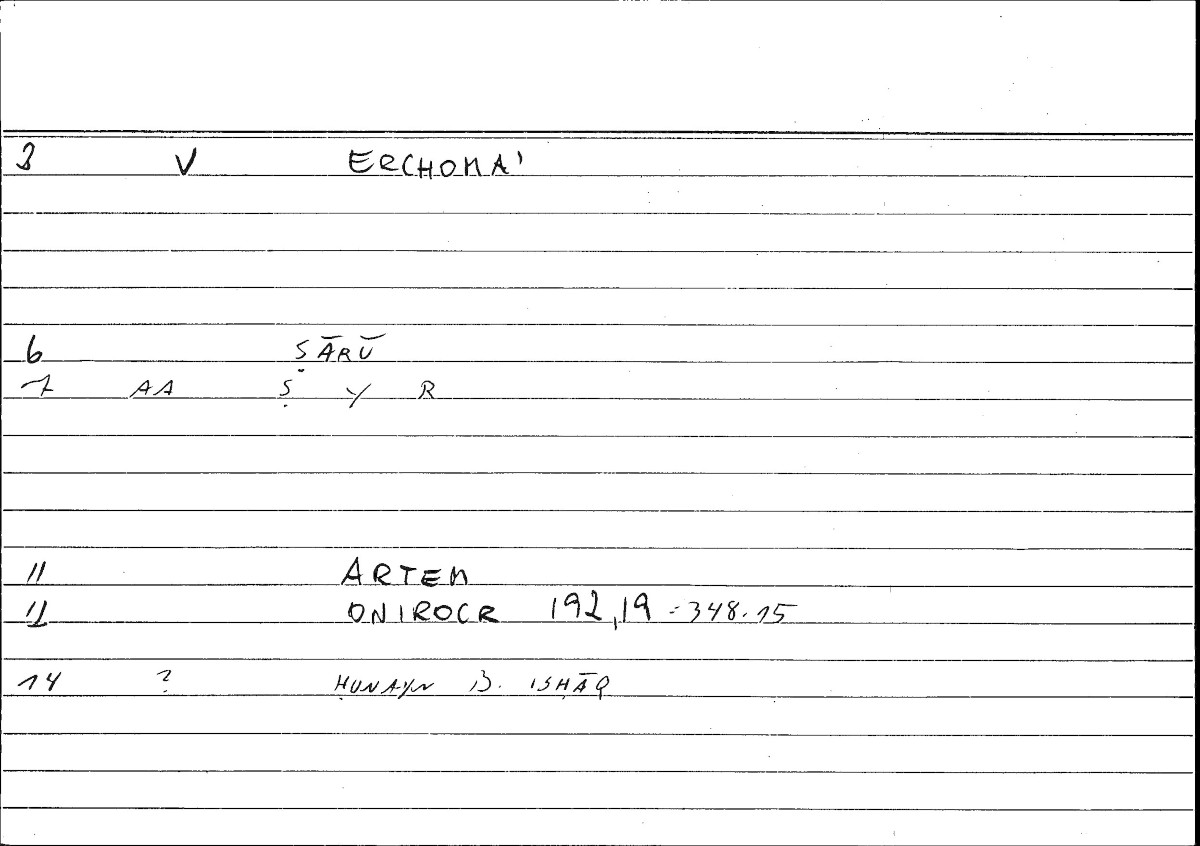 3 V ERCHOMA'
6 ṢĀRŪ
7 AA Ṣ Y R
11 ARTEM
12 ONIROCR 192,19 = 348.15
14 ? ḤUNAYN B. ISḤĀQ